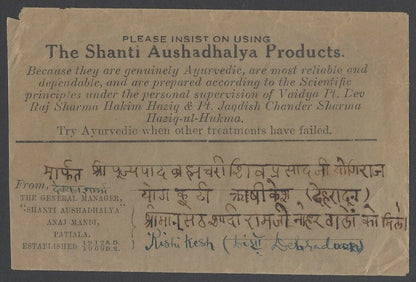 PLEASE INSIST ON USING
The Shanti Aushadhalya Products.
Because they are genuinely Ayurvedic, are most reliable and
dependable, and are prepared according to the Scientific
principles under the personal supervision of Vaidya Pt. Dev
Raj Sharma Hakim Haziq & Pt. Jagdish Chander Sharma
Haziq-ul-Hukma.
Try Ayurvedic when other treatments have failed.
मार्फत श्री पूज्यपाद ब्रह्मचारी शिव प्रसाद जी योगिराज
From,
योग कुटी ऋषीकेश (देहरादून)
THE GENERAL MANAGER,
"SHANTI AUSHADHALYA"
ANAJ MANDI,
PATIALA.
ESTABLISHED
श्रीमान् सेठ रामजी वालों को मिले
Rishikesh Dehradoon)